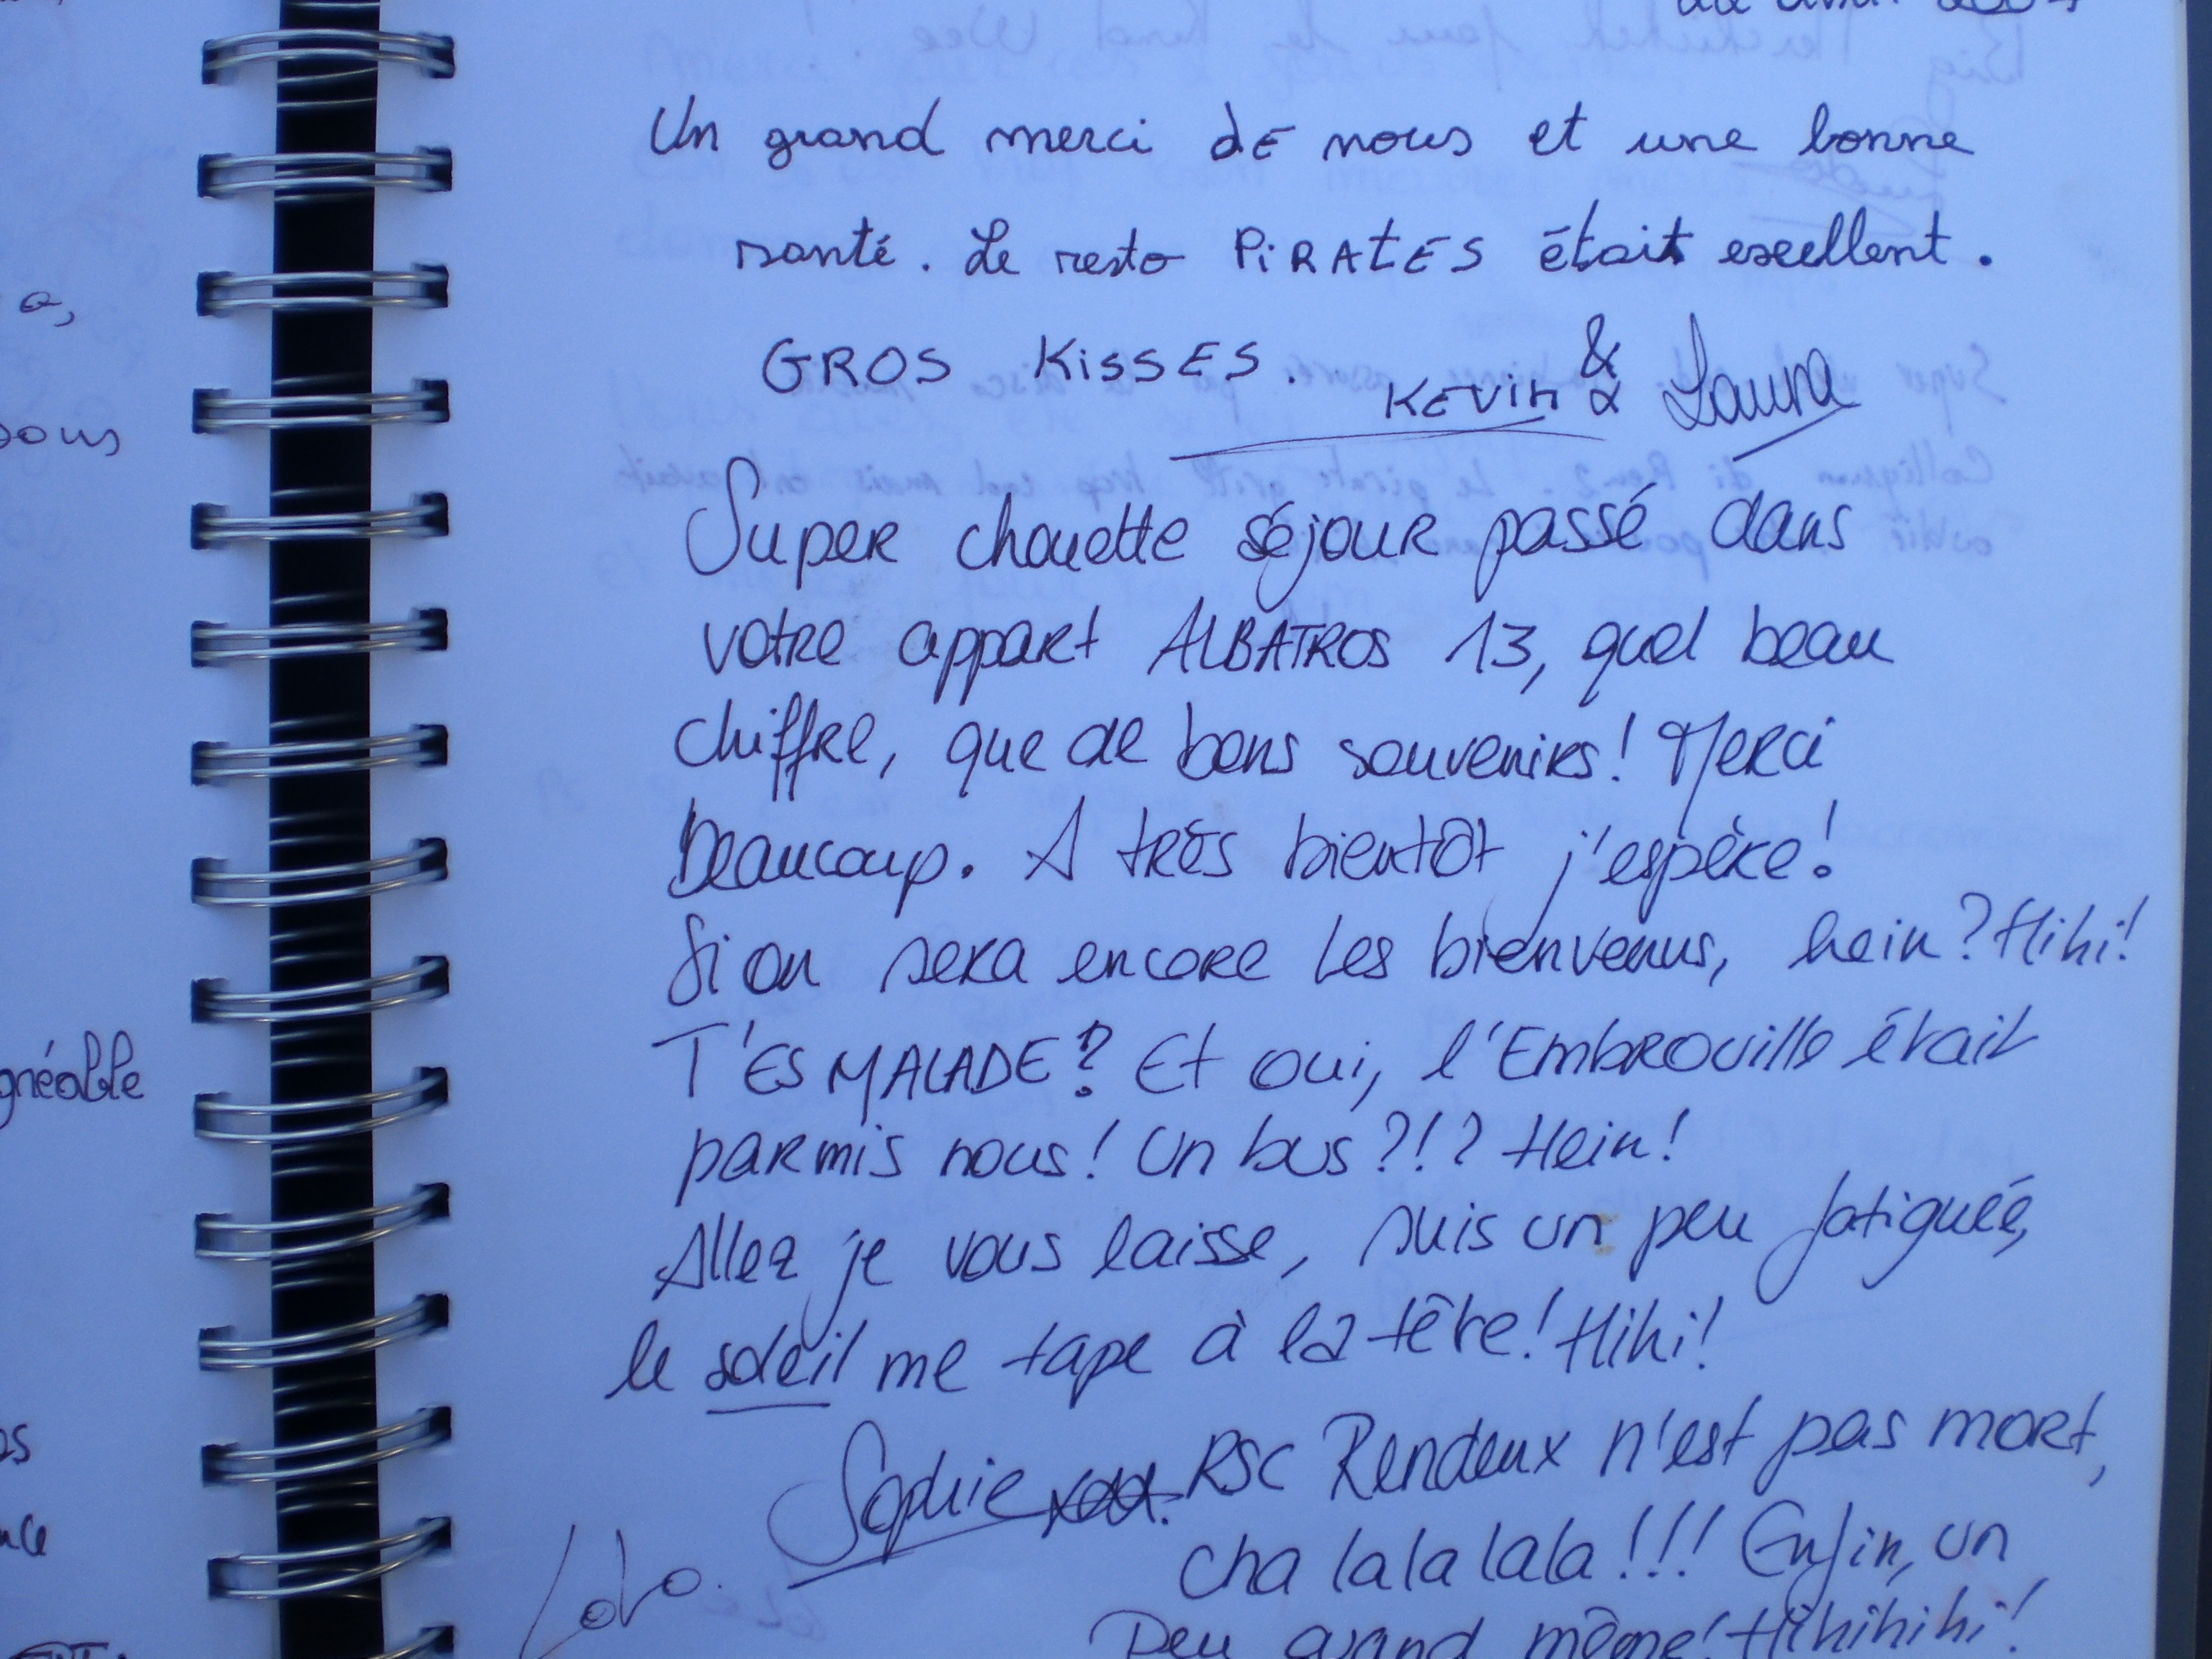 Un grand merci dE nous et une bonne
santé. Le resto PiRAtES était excellent.
GROS KiSSES.
KEVin & & Laura
Super chouette séjour passé dans
votre appart ALBATROS 13, quel beau
chiffre, que de bons souvenirs! Merci
Beaucoup. A très bientôt j'espère!
Si on sera encore les bienvenus, hein? Hihi!
T'ES MALADE? Et oui, l'Embrouille était
parmis nous! Un bus?!? Hein!
Allez je vous laisse, suis un peu fatiguée,
le soleil me tape à la tête! Hihi!
Sophie
RSC Rendeux n'est pas mort,
cha la la la la!!! Enfin, un
Peu quand même! Hihihihi!
gréable